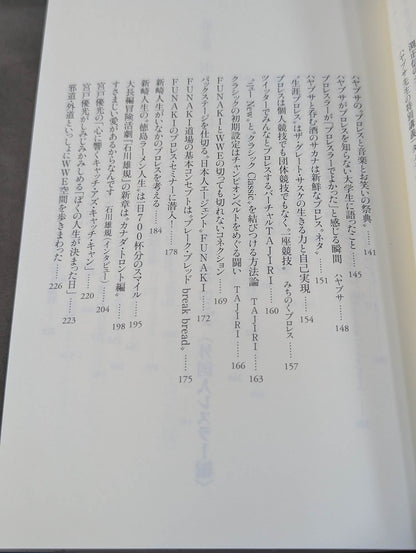 ハヤブサの〝プロレスと音楽とお笑いの祭典〟……141
ハヤブサがプロレスを知らない大学生に語ったこと……145
プロレスラーが〝プロレスラーでよかった〟と感じる瞬間 ハヤブサ……148
ハヤブサと呑む酒のサカナは新鮮なプロレス、ネタ……151
〝生涯プロレス〟はザ・グレート・サスケの生きる力と自己実現……154
プロレスは個人競技でも団体競技でもなく、〝一座競技〟 みちのくプロレス……157
ツイッターでみんなとプロレスするバーチャルTAJIRI……160
〝ニュー New〟と〝クラシック Classic〟を結びつける方法論 TAJIRI……163
クラシックの初期設定はチャンピオンベルトをめぐる闘い TAJIRI……166
FUNAKIとWWEの切っても切れないコネクション……169
バックステージを仕切る〝日本人エージェント〟FUNAKI……172
FUNAKI道場の基本コンセプトは〝ブレーク・ブレッド break bread〟……175
FUNAKIのプロレス・セミナーに潜入!……178
新崎人生がいなかのプロレスを考える……184
新崎人生の〝徳島ラーメン人生〟は一日700杯分のスマイル……195
大長編冒険活劇〝石川雄規〟の新章は〝カナダ・トロント編〟……198
すさまじい愛があるからなんです 石川雄規(インタビュー)……204
宮戸優光の〝心に響くキャッチ・アズ・キャッチ・キャン〟……220
宮戸優光がしみじみかみしめる〝ぼくの人生が決まった日〟……223
邪道・外道といっしょにWWE空間を歩きまわった……226